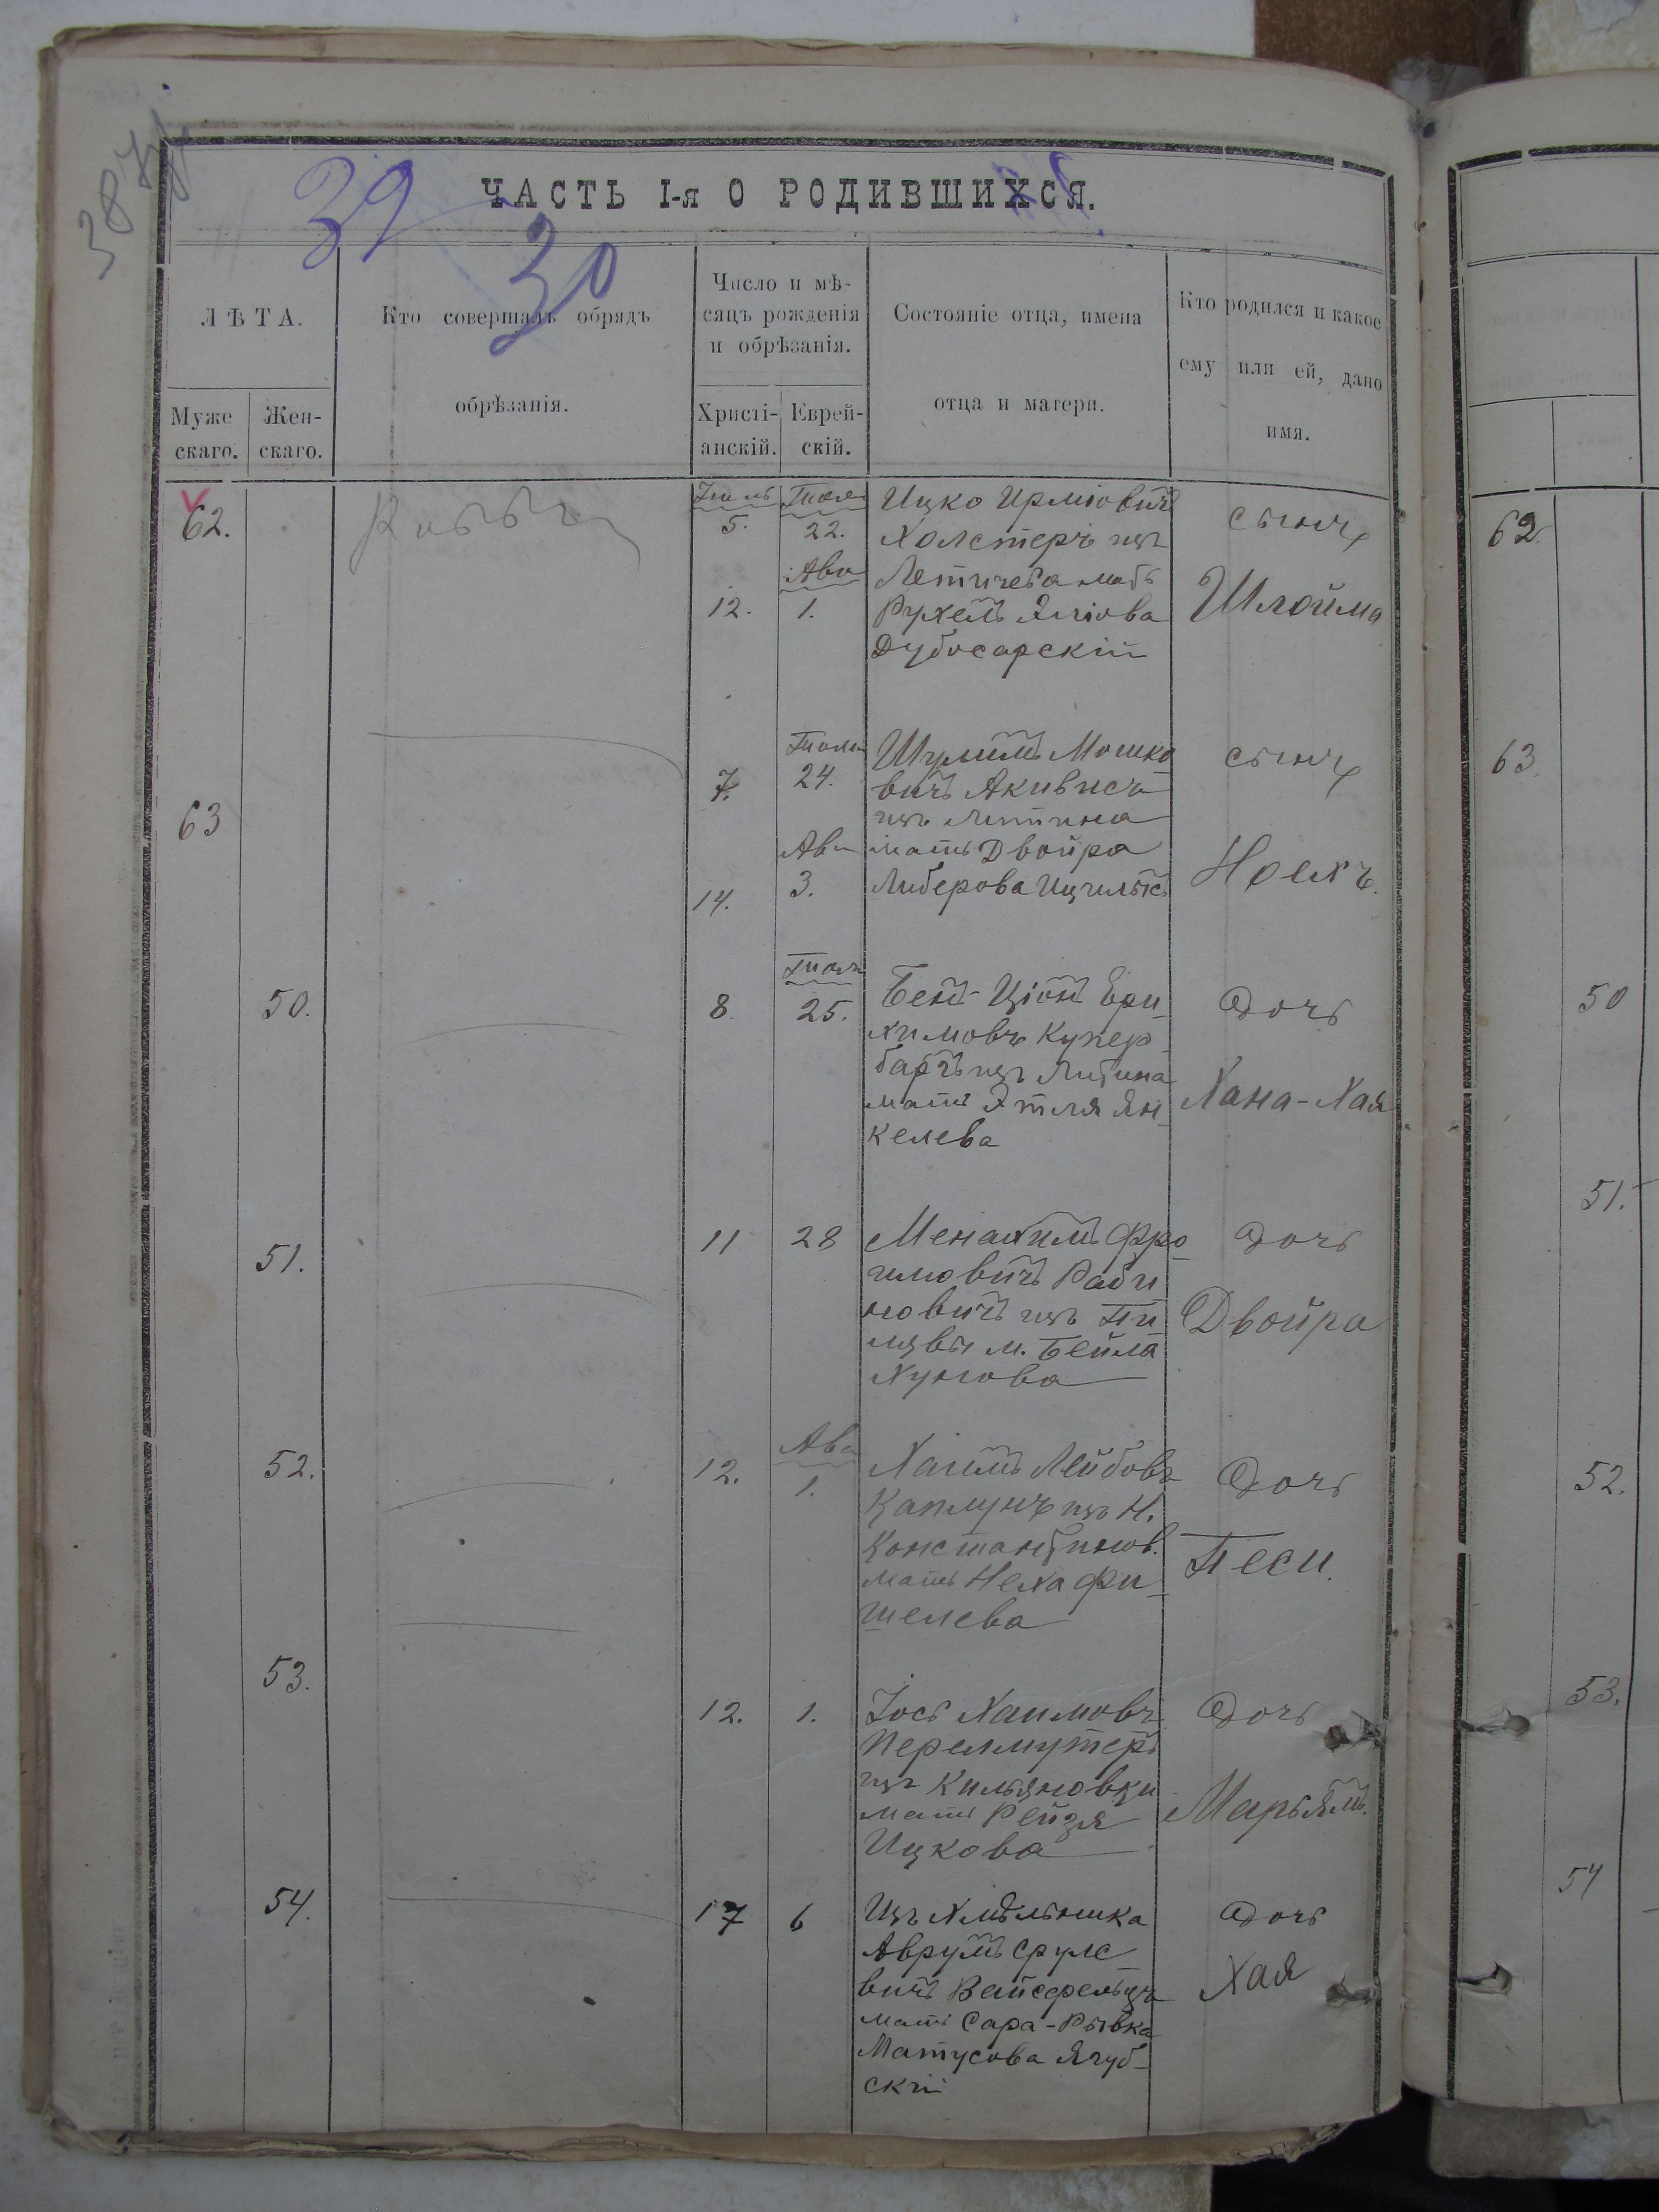 ЧАСТЬ I-я О РОДИВШИХСЯ.
39
30
ЛѢТА.
Муже
скаго.
Жен-
скаго.
Кто совершалъ обрядъ
обрѣзанія.
Число и мѣ-
сяцъ рожденія
и обрѣзанія.
Христі-
анскій.
Еврей-
скій.
Состояніе отца, имена
отца и матери.
Кто родился и какое
ему или ей, дано
имя.
62.
5.
22.
Ава
12.
1.
Ицко
Холстеръ изъ
Летичева мать
Рухель
Дубосарскій
сынъ
Шлойма
63
7.
24.
Ава
14.
3.
Шулимъ Мошко
вичъ Акивисъ
изъ Литина
мать Двойра
Либерова
сынъ
50.
8.
25.
Бенъ-Ціонъ Ери
химовъ Купер-
изъ Литина
мать Этля Ян-
келева
дочь
Хана-Хая
51.
11
28
Менахимъ Фро
имовичъ Раби
новичъ изъ Пи
лявы м. Бейла
дочь
Двойра
52.
12.
Ава
1.
Хаимъ Лейбовъ
Каплунъ изъ Н.
Константинов.
мать Неха Фи-
шелева
дочь
Песи.
53.
12.
1.
Іось Хаимовъ
Перелмутеръ
изъ Кильяновки
мать Рейзя
Ицкова
дочь
Марьямъ.
54.
17
6
Изъ Хмѣльника
Аврумъ Сруле
вичъ Вайсфельдъ
мать Сара-Рывка
Матусова Ягуб-
скій
дочь
Хая
62.
63.
50
51.
52.
53.
54